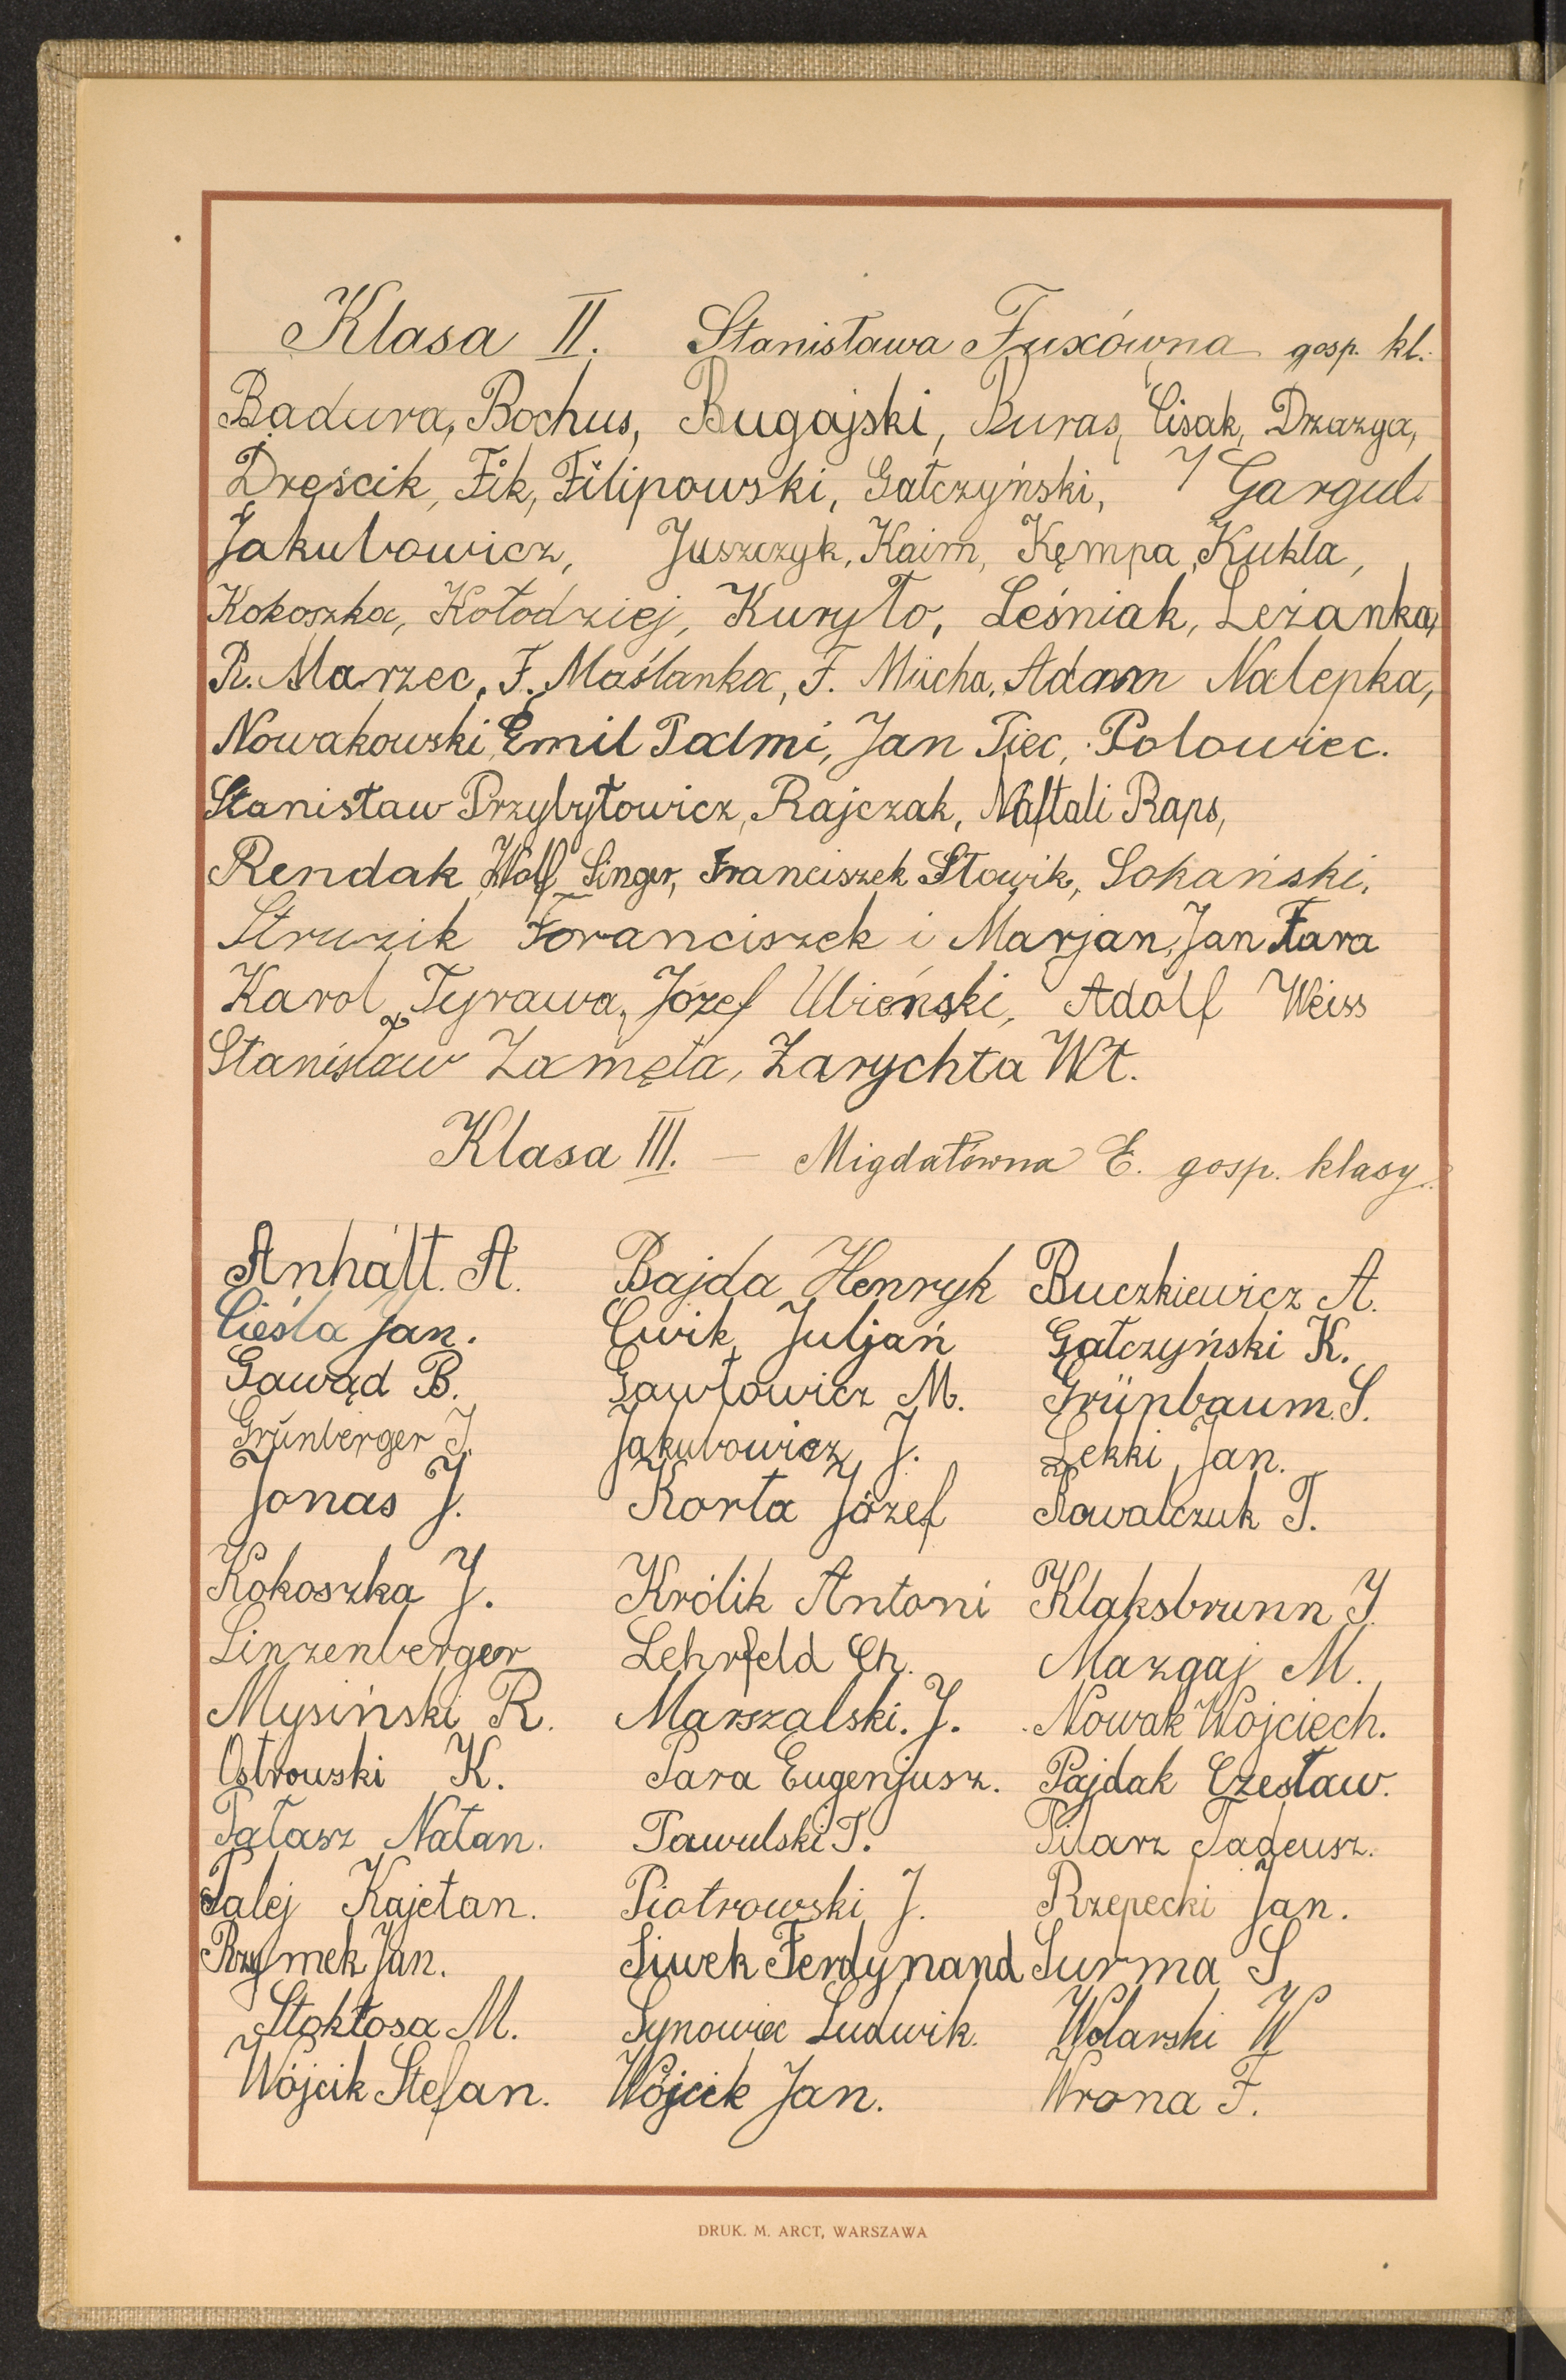 Klasa II. Stanisława Fuxówna gosp. kl.
Badura, Bochus, Bugajski, Buras, Cisak, Drzazga,
Dręścik, Fik, Filipowski, Gałczyński, J Gargul.
Jakubowicz, Juszczyk, Kaim, Kęmpa, Kukla,
Kokoszka, Kołodziej, Kuryło, Leśniak, Leżanka,
R. Marzec, F. Maślanka, F. Mucha, Adam Nalepka,
Nowakowski, Emil Padmi, Jan Piec, Polowiec.
Stanisław Przybyłowicz, Rajczak, Naftali Raps,
Rendak, Wolf Singer, Franciszek Słowik, Sokański,
Struzik Franciszek i Marjan, Jan Fara
Karol Tyrawa, Józef Ubieński, Adolf Weiss
Stanisław Zamęta, Zarychta Wł.
Klasa III. — Migdałówna E. gosp. klasy.
Anhalt. A. Bajda Henryk Buczkiewicz A.
Cieśla Jan. Ćwik Juljan Gałczyński K.
Gawąd B. Gawłowicz M. Grünbaum S.
Grünberger J. Jakubowicz J. Lekki Jan.
Jonas J. Korta Józef Kowalczuk T.
Kokoszka J. Królik Antoni Klaksbrunn J.
Linzenberger Lehrfeld Ch. Mazgaj M.
Mysiński R. Marszalski. J. Nowak Wojciech.
Ostrowski K. Para Eugenjusz. Pajdak Czesław.
Patasz Natan. Pawulski T. Pilarz Tadeusz.
Palej Kajetan. Piotrowski J. Rzepecki Jan.
Rzymek Jan. Siwek Ferdynand Surma S.
Stokłosa M. Synowiec Ludwik. Wolarski W
Wójcik Stefan. Wójcik Jan. Wrona F.
DRUK. M. ARCT, WARSZAWA